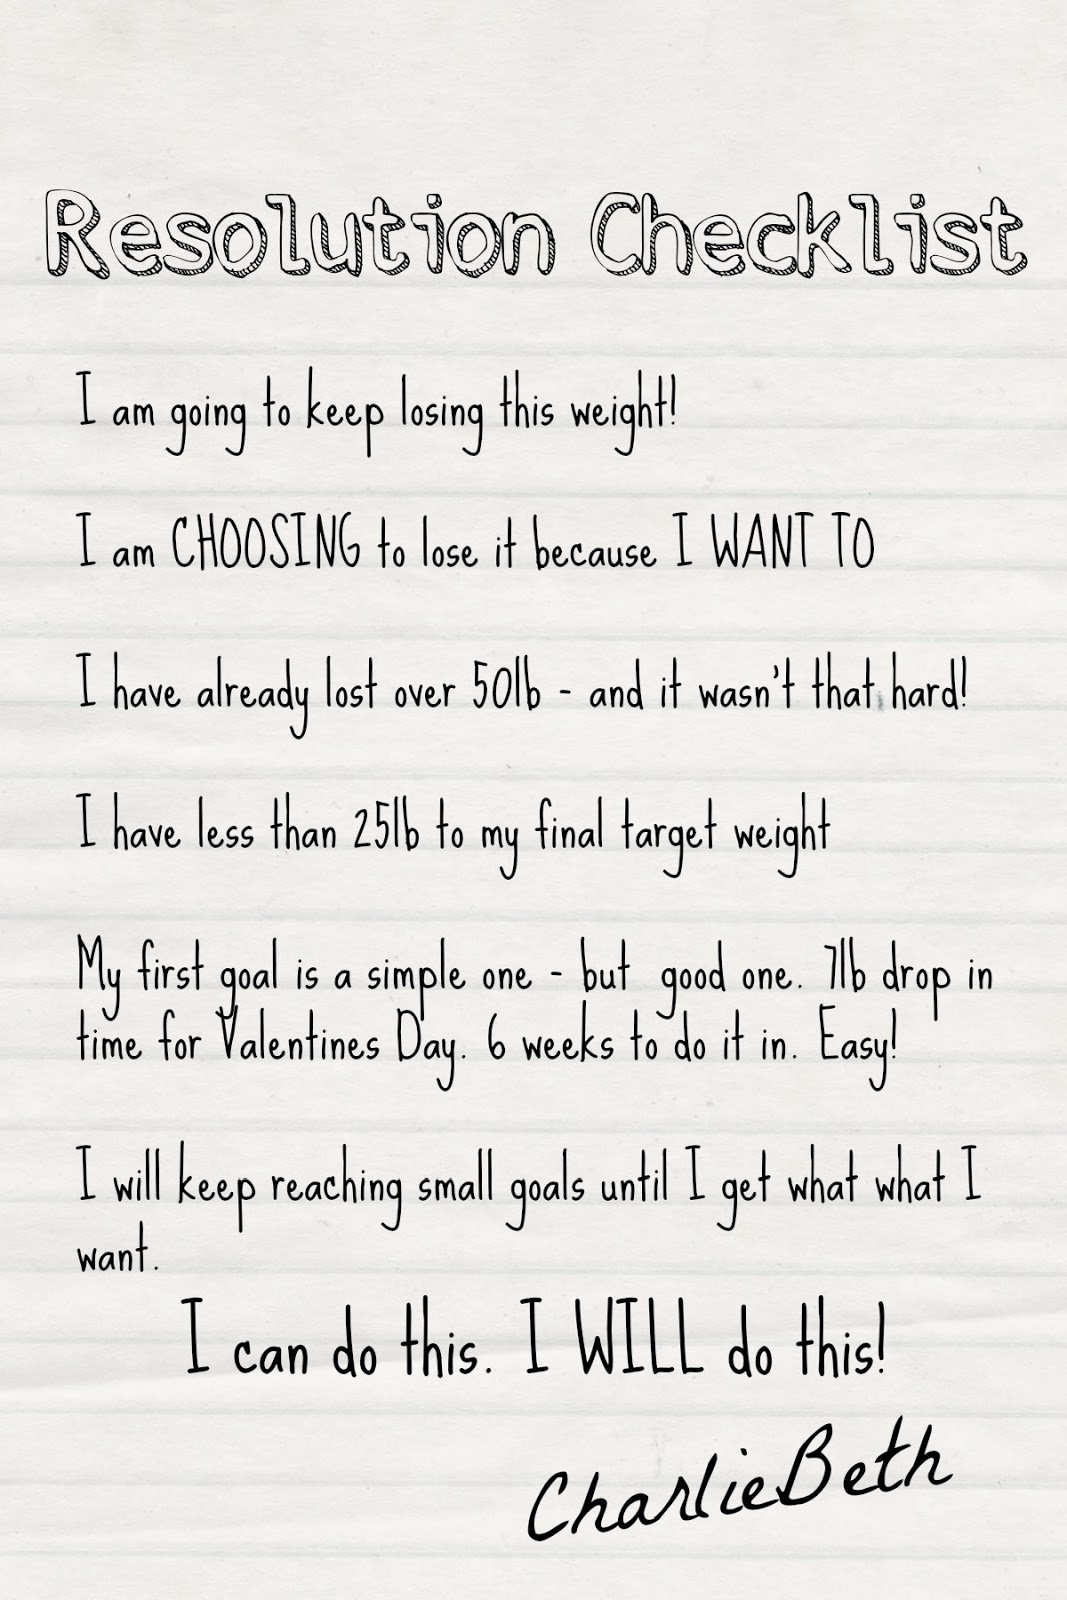 Resolution Checklist
I am going to keep losing this weight!
I am CHOOSING to lose it because I WANT TO
I have already lost over 50lb - and it wasn't that hard!
I have less than 25lb to my final target weight
My first goal is a simple one - but good one. 7lb drop in
time for Valentines Day. 6 weeks to do it in. Easy!
I will keep reaching small goals until I get what what I
want.
I can do this. I WILL do this!
CharlieBeth